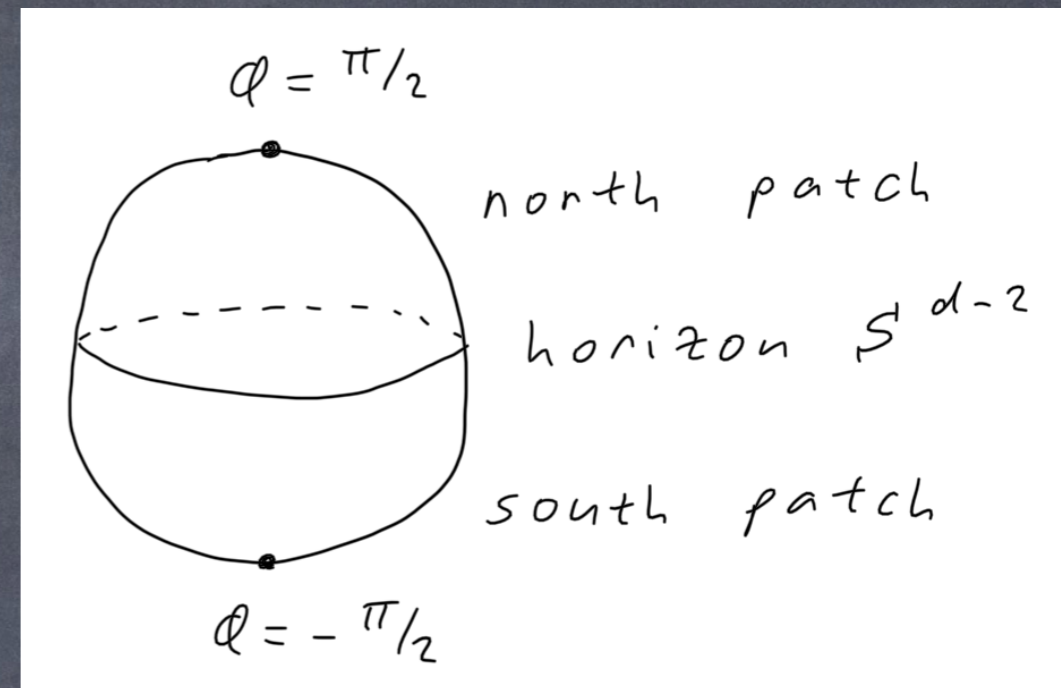 φ = π/2
north patch
horizon S^{d-2}
south patch
φ = - π/2